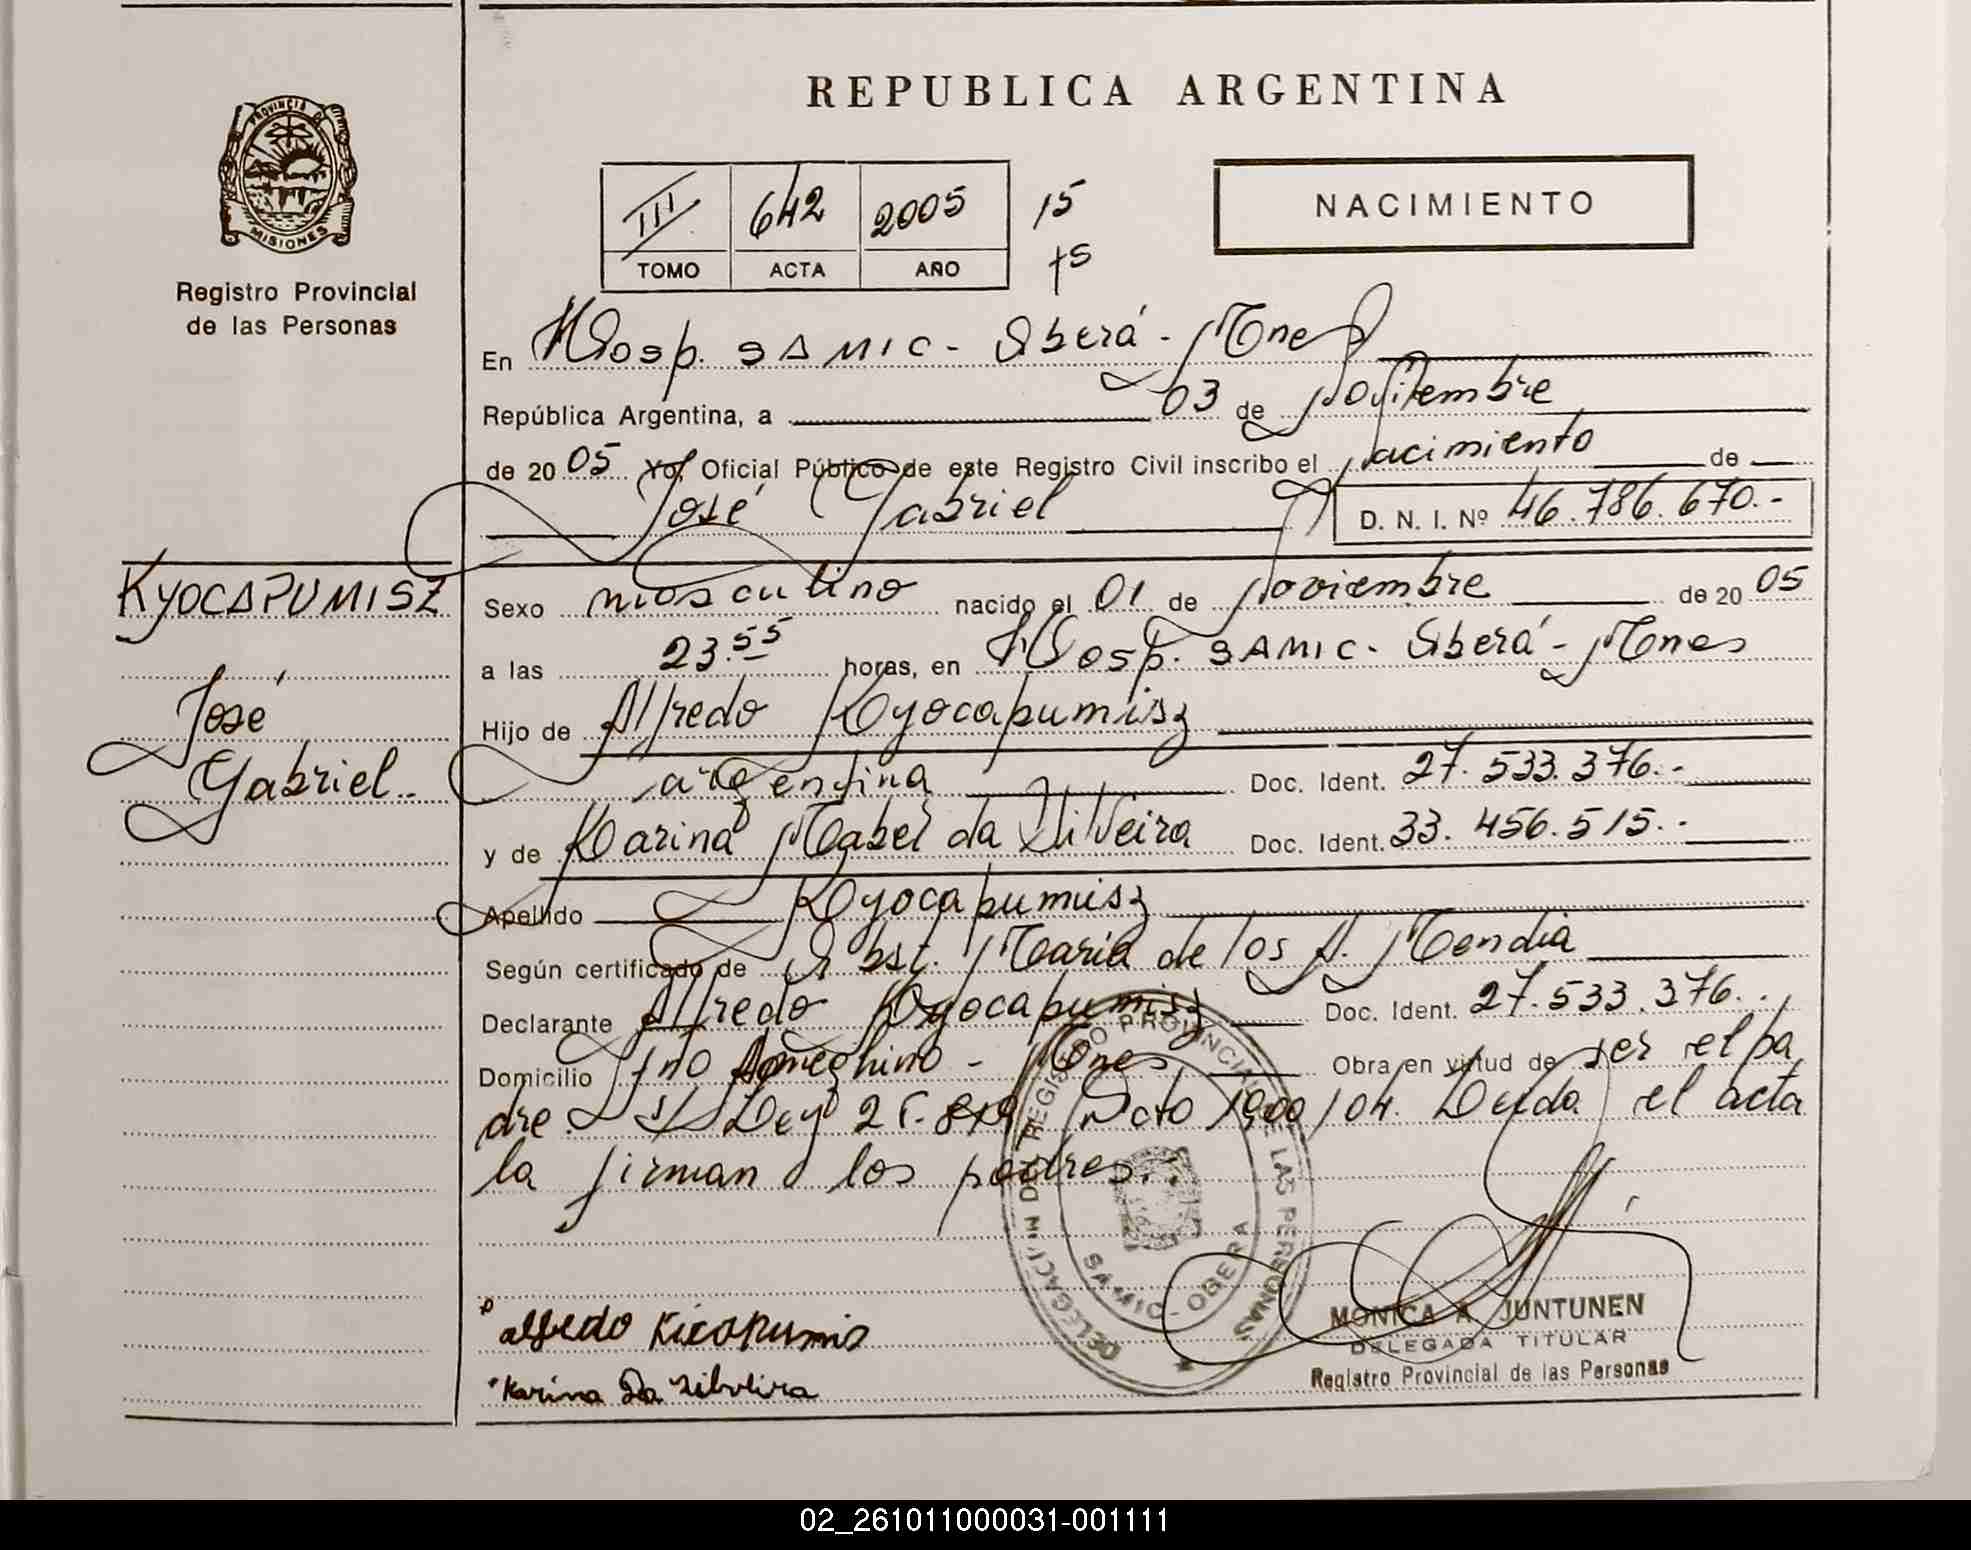 REPUBLICA ARGENTINA
PROVINCIA DE
MISIONES
Registro Provincial
de las Personas
III 642 2005 15
TOMO ACTA AÑO 15
NACIMIENTO
En Hosp. SAMIC - Oberá - Mnes
República Argentina, a 03 de Noviembre
de 2005 Yo, Oficial Público de este Registro Civil inscribo el Nacimiento de
José Gabriel D. N. I. Nº 46.786.670.-
KYOCAPUMISZ
José
Gabriel.-
Sexo masculino nacido el 01 de Noviembre de 2005
a las 23.55 horas, en Hosp. SAMIC - Oberá - Mnes
Hijo de Alfredo Kyocapumisz
argentina Doc. Ident. 27.533.376.-
y de Karina Mabel da Silveira Doc. Ident. 33.456.515.-
Apellido Kyocapumisz
Según certificado de Obst. Maria de los A. Mendia
Declarante Alfredo Kyocapumisz Doc. Ident. 27.533.376.
Domicilio Ameghino - Mnes Obra en virtud de ser el pa
dre. s/ Ley 25.819 Dcto 1900/04. Leída el acta
la firman los padres.
DELEGACION DEL REGISTRO PROVINCIAL DE LAS PERSONAS
SAMIC - OBERA
alfredo Kicapumis
Karina Da Silveira
MONICA A JUNTUNEN
DELEGADA TITULAR
Registro Provincial de las Personas
02_261011000031-001111